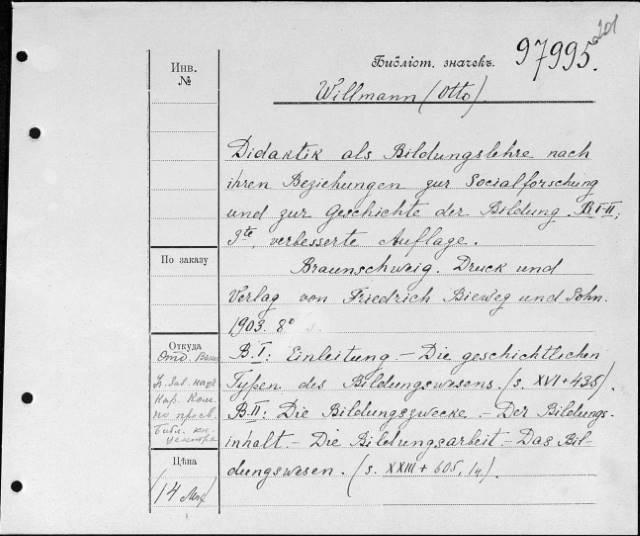 201
Инв.
№
Библіот. значекъ.
97995.
Willmann (Otto).
Didaktik als Bildungslehre nach
ihren Beziehungen zur Socialforschung
und zur Geschichte der Bildung. B I-II;
3te, verbesserte Auflage.
По заказу
Braunschweig. Druck und
Verlag von Friedrich Bieweg und Sohn.
1903. 8°
Откуда
B. I: Einleitung – Die geschichtlichen
Typen des Bildungswesens. (s. XVI + 435).
B. II: Die Bildungszwecke. – Der Bildungs-
inhalt. – Die Bildungsarbeit – Das Bil-
dungswesen. (s. XXIII + 605, 1н).
Отд.
по просв.
Библ.
Цѣна
(14 Mk)